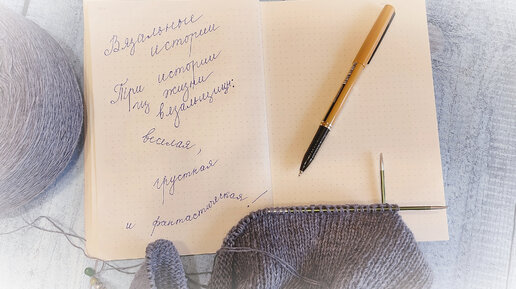 Вязальные
истории
Три истории
из жизни
вязальщиц:
веселая,
грустная
и фантастическая!